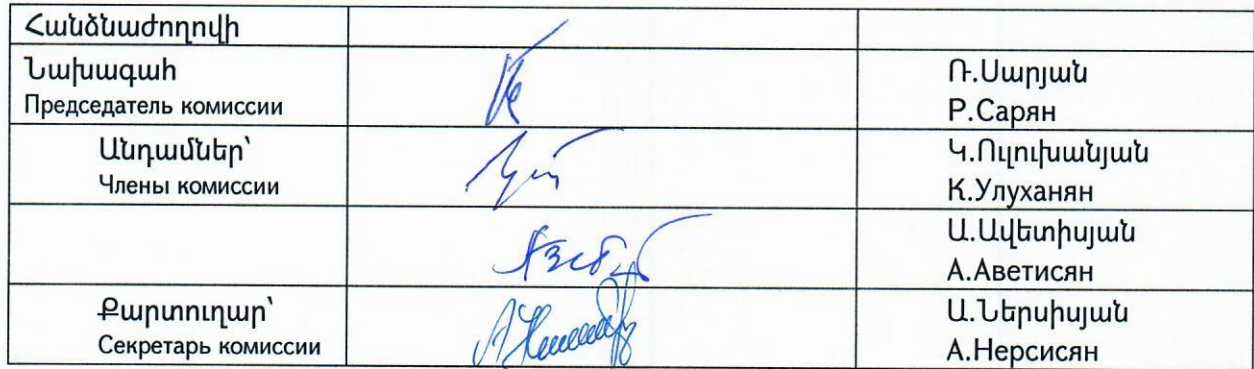 Հանձնաժողովի
Նախագահ
Председатель комиссии
Ռ.Սարյան
Р.Сарян
Անդամներ՝
Члены комиссии
Կ.Ուլուխանյան
К.Улуханян
Ա.Ավետիսյան
А.Аветисян
Քարտուղար՝
Секретарь комиссии
Ա.Ներսիսյան
А.Нерсисян